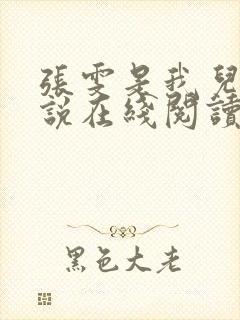 張雯是我兒
說在綫閱讀
黑色大老